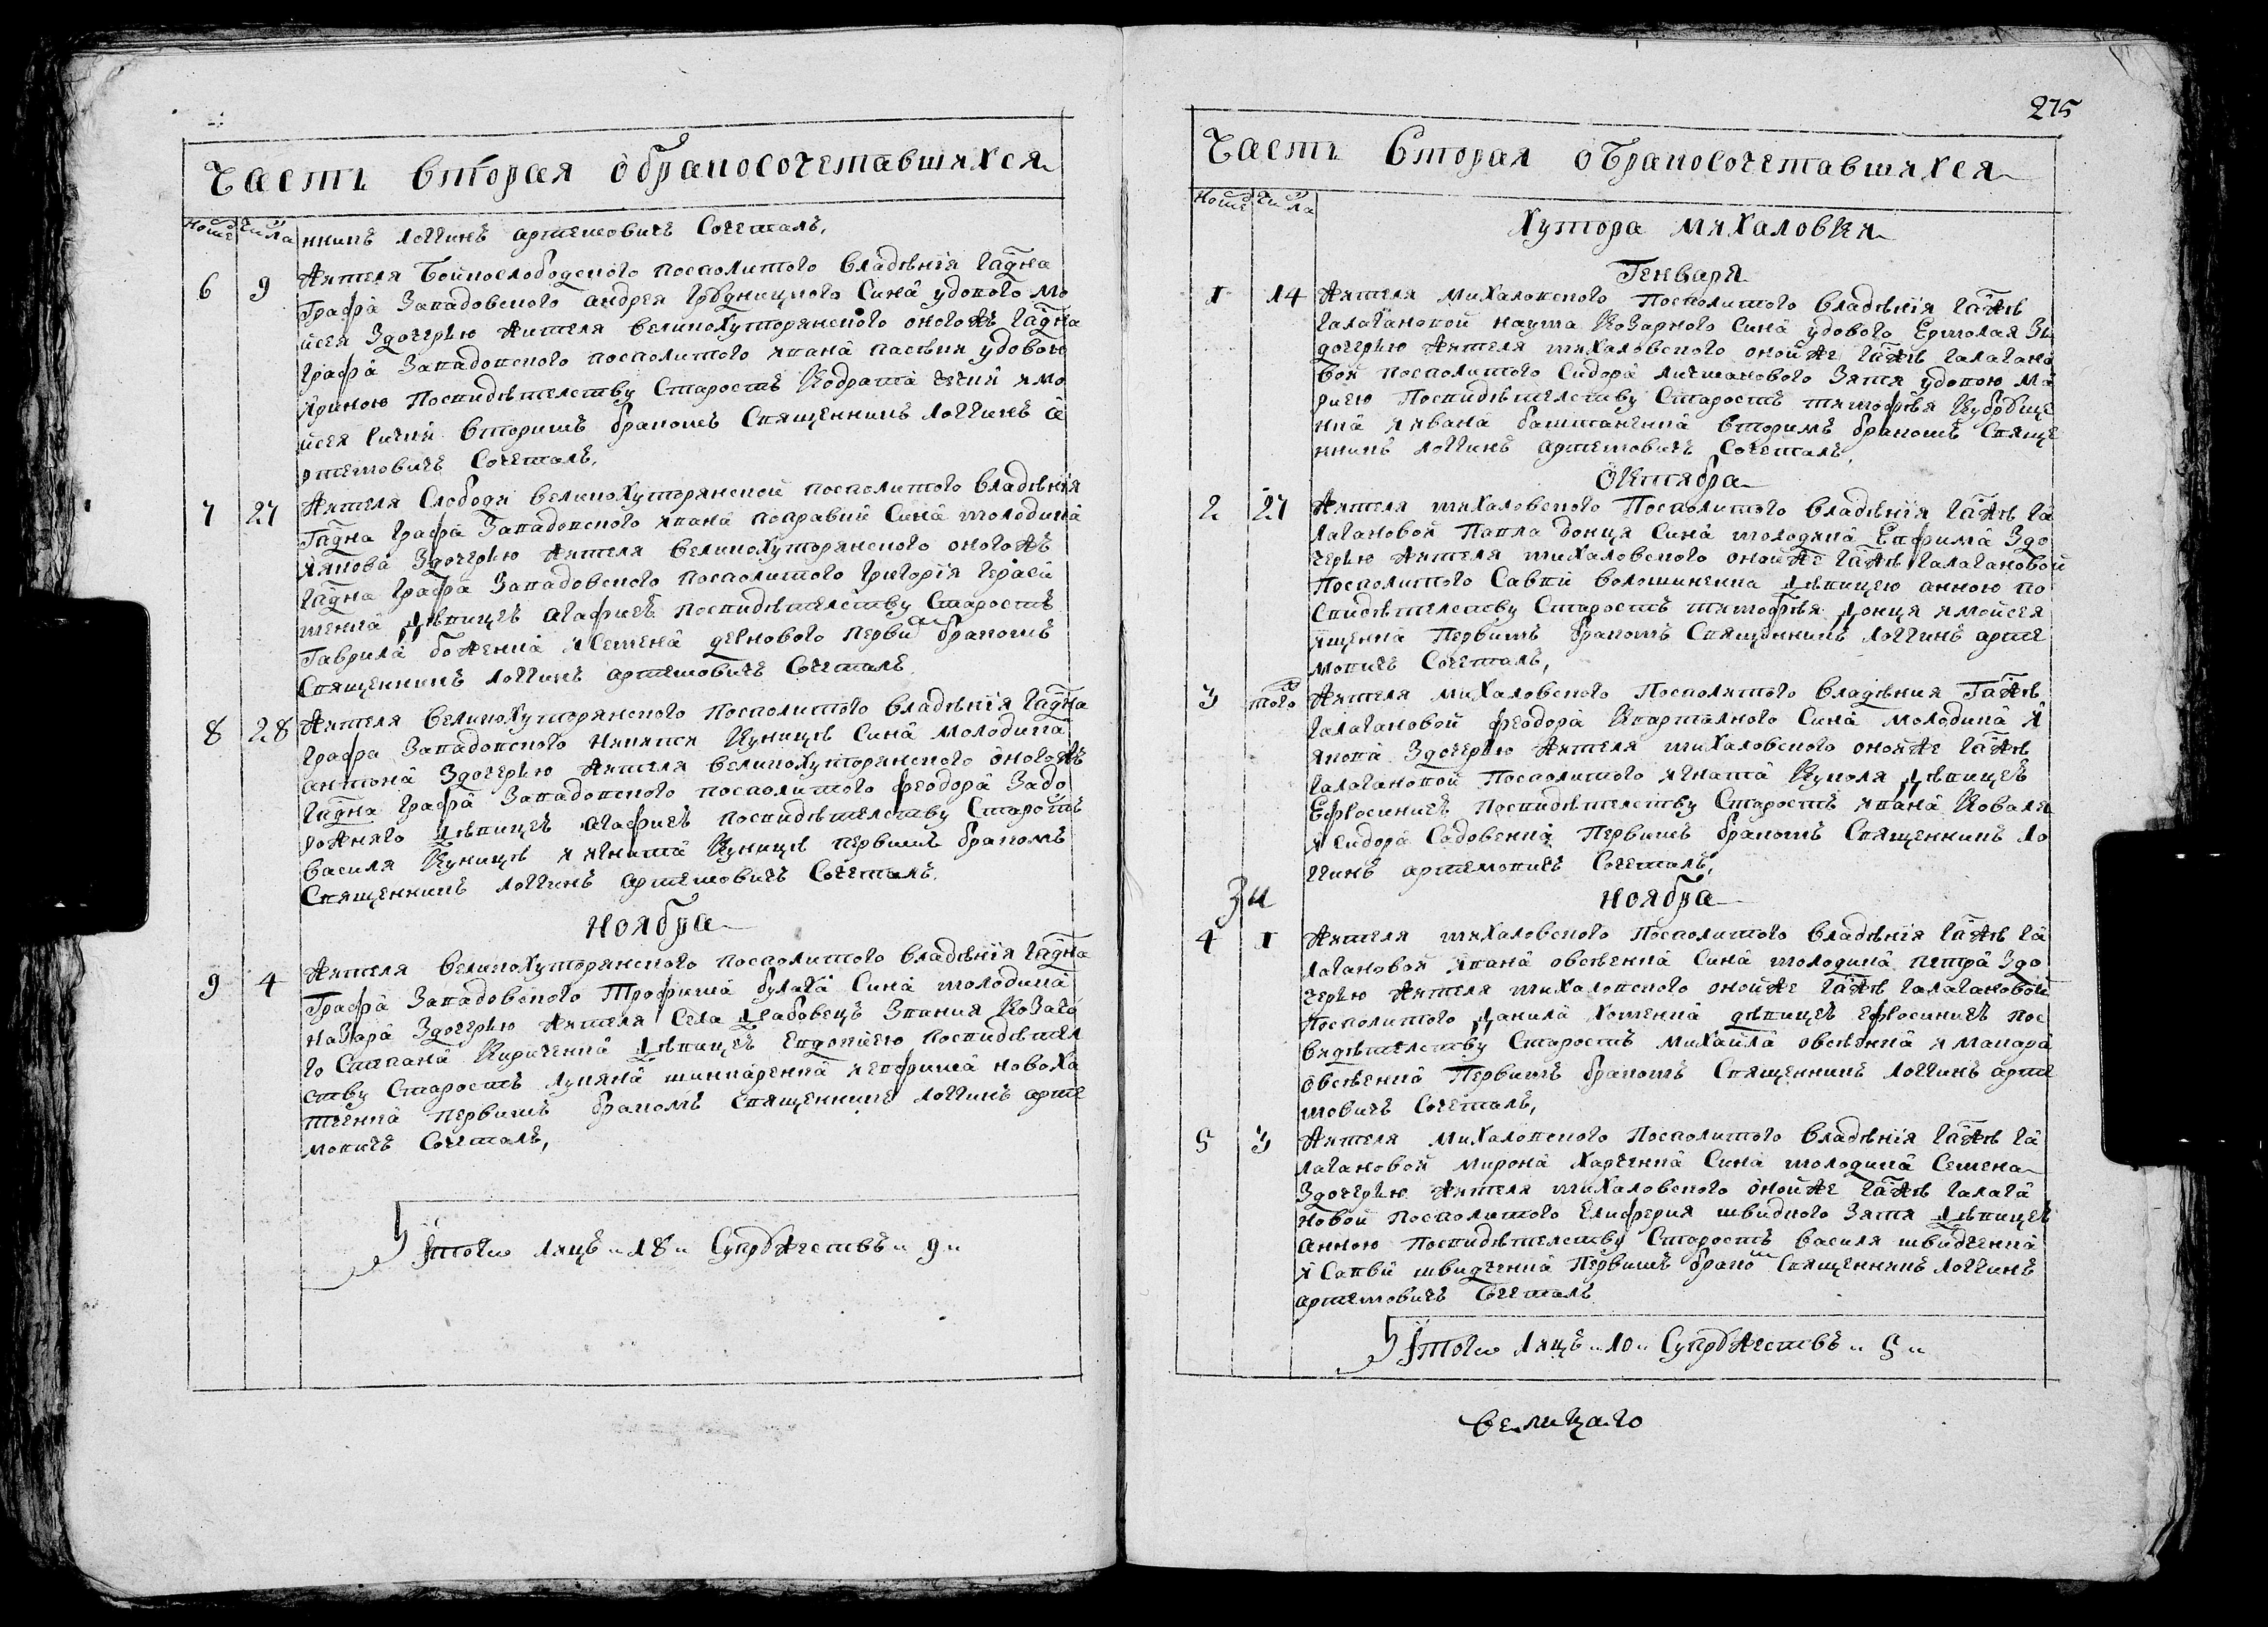 Часть вторая о бракосочетавшихся
Номе Числа
нникъ логгинъ артемовичъ Сочеталъ,
6 9 Жителя Бойкослободского посполитого владѣнія Гадна
Графа Завадовского андрея Сина удового мо
йсея Здочерью жителя великохуторянского оногожъ Гадна
Графа Завадовского посполитого івана удовою
Ириною Посвидѣтелству Старостъ Кодрата и мо
йсея вторимъ бракомъ Священникъ логгинъ а
ртемовичъ Сочеталъ,
7 27 Жителя Слободи великохуторянской посполитого владѣнія
Гадна Графа Завадовского івана Сина молодика
якова Здочерью жителя великохуторянского оногожъ
Гадна Графа Завадовского посполитого Григорія Гераси
менка Дѣвицеъ агафиеъ посвидѣтелству Старостъ
Гаврила боженка и Семена первимъ бракомъ
Священникъ логгинъ артемовичъ Сочеталъ,
8 28 Жителя великохуторянского посполитого владѣнія Гадна
Графа Завадовского Куницѣ Сина молодика
антона Здочерью жителя великохуторянского оногожъ
Гадна Графа Завадовского посполитого феодора Задо
рожняго Дѣвицеъ агафиеъ посвидѣтелству Старостъ
василя Куницѣ и игната Куницѣ первимъ бракомъ
Священникъ логгинъ артемовичъ Сочеталъ,
Ноября
9 4 Жителя великохуторянского посполитого владѣнія Гадна
Графа Завадовского Трофима булаха Сина молодика
Назара Здочерью жителя Села Деабовецъ Звания Козачо
го Стапана Кириченка Дѣвицеъ Евдокиею посвидѣтел
ству Старостъ лукяна шинкаренка и евфрима новоха
тченка первимъ бракомъ священникъ логгинъ арте
мовичъ Сочеталъ,
Итого лицъ 18 Супружествъ 9
275
Часть Вторая о бракосочетавшихся
Номе Числа
Хутора михаловки
Генваря
1 14 Жителя михаловского посполитого владѣнія Гажѣ
Галагановой наума Козарного Сина удового Ермолая Зъ
дочерью жителя михаловского онойже Гажѣ Галагано
вой посполитого Сидора Зятя удовою Ма
риею Посвидѣтелству Старостъ тимофѣя
нка и ивана баштаненка вторимъ бракомъ Священ
нникъ логгинъ артемовичъ Сочеталъ,
Октября
2 27 Жителя михаловского Посполитого владѣнія Гажѣ Га
лагановой Павла донця Сина молодика Евфима Здо
черью жителя михаловского онойже Гажѣ Галагановой
Посполитого Савви волошиненка Дѣвицею анною по
Свидѣтелству Старостъ тимофѣя Донця и мойсея
ященка Первимъ бракомъ Священникъ логгинъ арте
мовичъ Сочеталъ,
3 того Жителя михаловского Посполитого владѣния Гажѣ
Галагановой феодора Квартального Сина молодика И
якова Здочерью жителя михаловского онойже Гажѣ
Галагановой посполитого игната Куколя Дѣвицеъ
Ефросиниеъ посвидѣтелству Старостъ івана Коваля
и Сидора Садовенка Первимъ бракомъ Священникъ ло
ггинъ артемовичъ Сочеталъ,
Ноября
4 1 Жителя михаловского посполитого владѣнія Гажѣ Га
лагановой івана овсѣенка Сина молодика петра Здо
черью жителя михаловского онойже Гажѣ Галагановой
посполитого Данила хоменка дѣвицеъ ефросиниеъ пос
видѣтелству Старостъ михайла овсѣенка и макара
овсѣенка Первимъ бракомъ Священникъ логгинъ арте
мовичъ Сочеталъ,
5 3 Жителя михаловского посполитого владѣнія Гажѣ Га
лагановой мирона харченка Сина молодика Семена
Здочерью жителя михаловского онойже Гажѣ Галага
новой посполитого Елиферия швидкого Зятя Дѣвицеъ
анною посвидѣтелству Старостъ василя швидченка
и Савви швидченка Первимъ бракомъ Священникъ логгинъ
артемовичъ Сочеталъ
Итого лицъ 10 Супружествъ 5